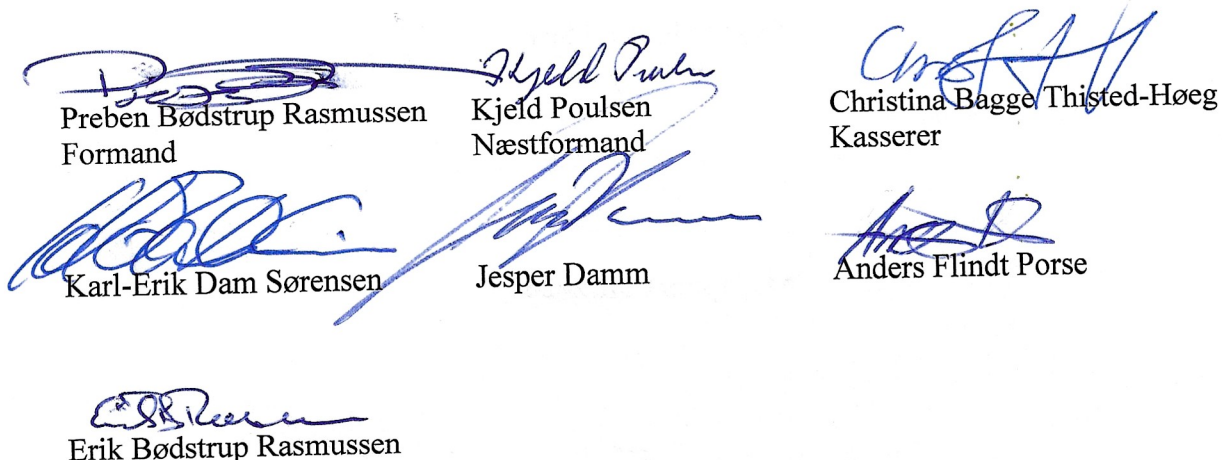 Kjeld Poulsen
Preben Bødstrup Rasmussen
Formand
Kjeld Poulsen
Næstformand
Christina Bagge Thisted-Høeg
Kasserer
Karl-Erik Dam Sørensen
Jesper Damm
Anders Flindt Porse
Erik Bødstrup Rasmussen